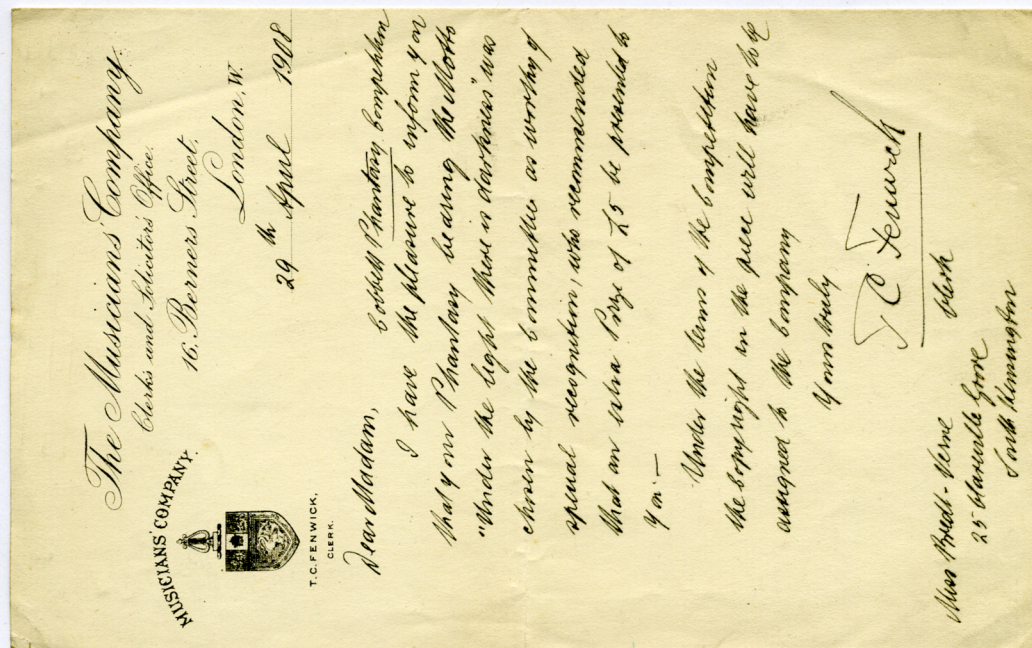 The Musicians' Company.
Clerks and Solicitors Office.
16. Berners Street,
London, W.
29th April 1908
MUSICIANS' COMPANY.
T.C. FENWICK,
CLERK.
Dear Madam,
Cobbett Phantasy Competition
I have the pleasure to inform you
that your Phantasy bearing the Motto
"Under the light there is darkness" was
chosen by the Committee as worthy of
special recognition, who recommended
that an extra Prize of £5 be presented to
you. —
Under the terms of the Competition
the copyright in the piece will have to be
assigned to the Company
Yours truly
T C Fenwick
Clerk
Miss Bredt-Verne
25 Granville Grove
South Kensington